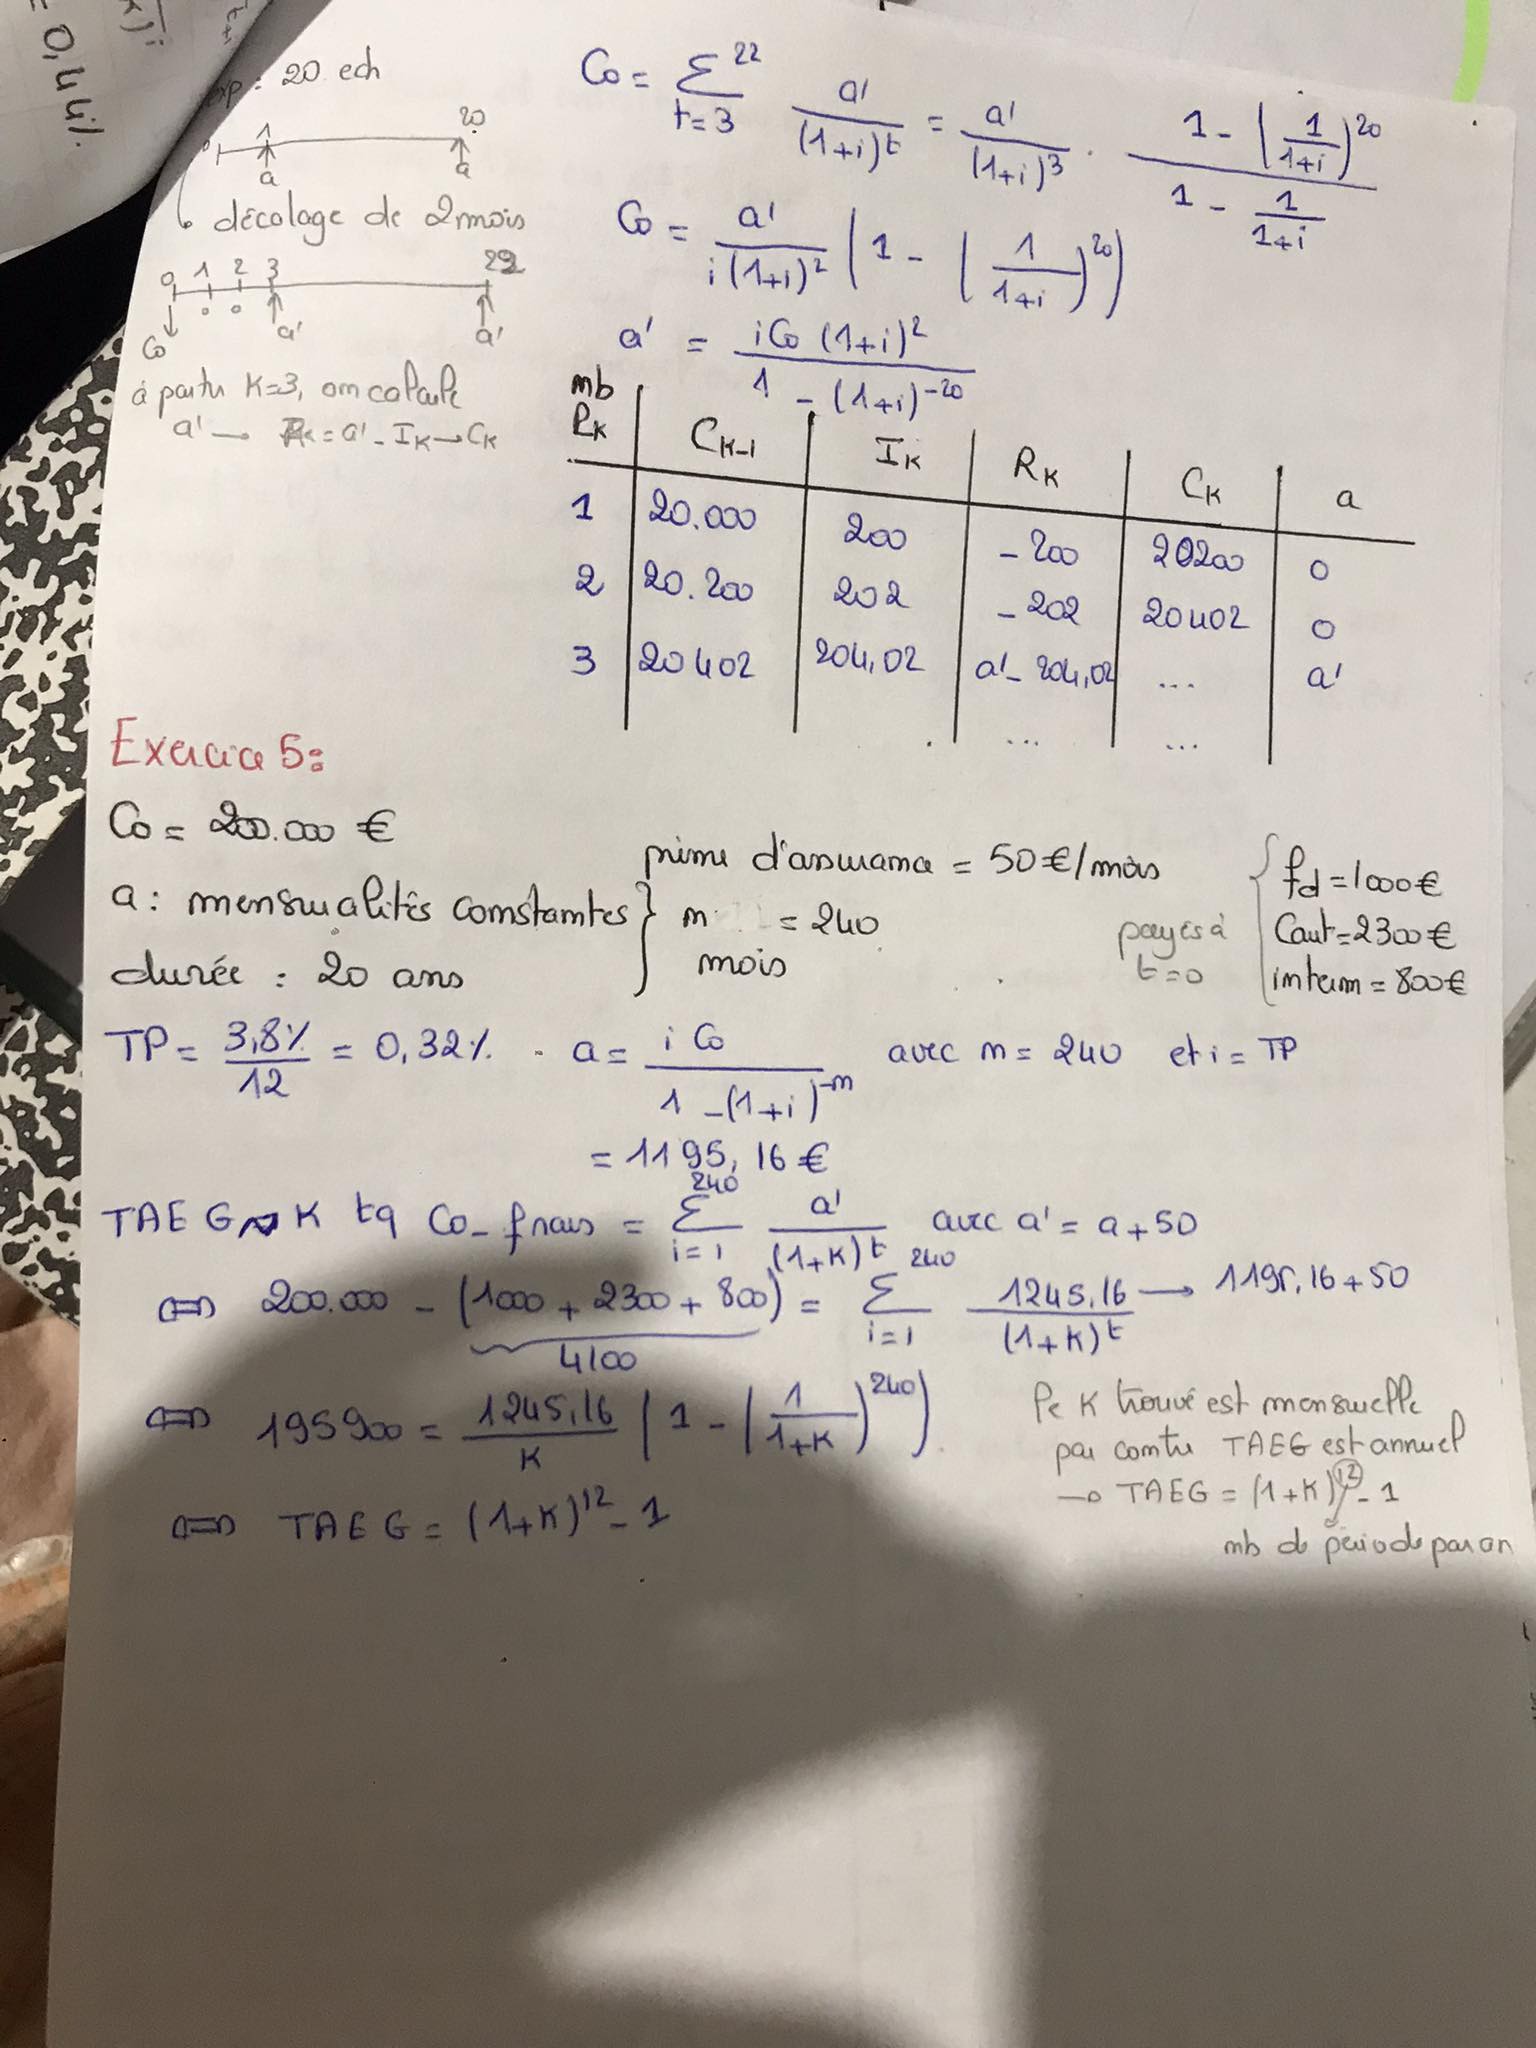 = 0,44%
20 ech
0 1 20
a a
décalage de 2 mois
0 1 2 3 22
Co o o a' a'
à partir K=3, on calcule
a' → Rk = a' - IK → CK
Co = Σ^22_{t=3} a'/(1+i)^t = a'/(1+i)^3 . (1 - (1/(1+i))^20)/(1 - 1/(1+i))
Co = a'/(i(1+i)^2) (1 - (1/(1+i))^20)
a' = i Co (1+i)^2/(1 - (1+i)^-20)
nb
PK CK-1 IK RK CK a
1 20.000 200 -200 20200 0
2 20.200 202 -202 20402 0
3 20402 204,02 a'-204,02 ... a'
... ...
Exercice 5:
Co = 200.000 €
prime d'assurance = 50€/mois
fd = 1000€
a: mensualités constantes } n = 240
payés à Caut = 2300€
durée : 20 ans mois
t=0 interm = 800€
TP = 3,8%/12 = 0,32%. a = i Co/(1 - (1+i)^-n) avec n = 240 et i = TP
= 1195,16 €
TAEG K tq Co - frais = Σ^240_{i=1} a'/(1+K)^t avec a' = a + 50
⇔ 200.000 - (1000 + 2300 + 800) = Σ^240_{i=1} 1245,16/(1+K)^t → 1195,16 + 50
4100
⇔ 195900 = 1245,16/K (1 - (1/(1+K))^240)
⇔ TAEG = (1+K)^12 - 1
le K trouvé est mensuelle
par contre TAEG est annuel
→ TAEG = (1+K)^12 - 1
nb de période par an